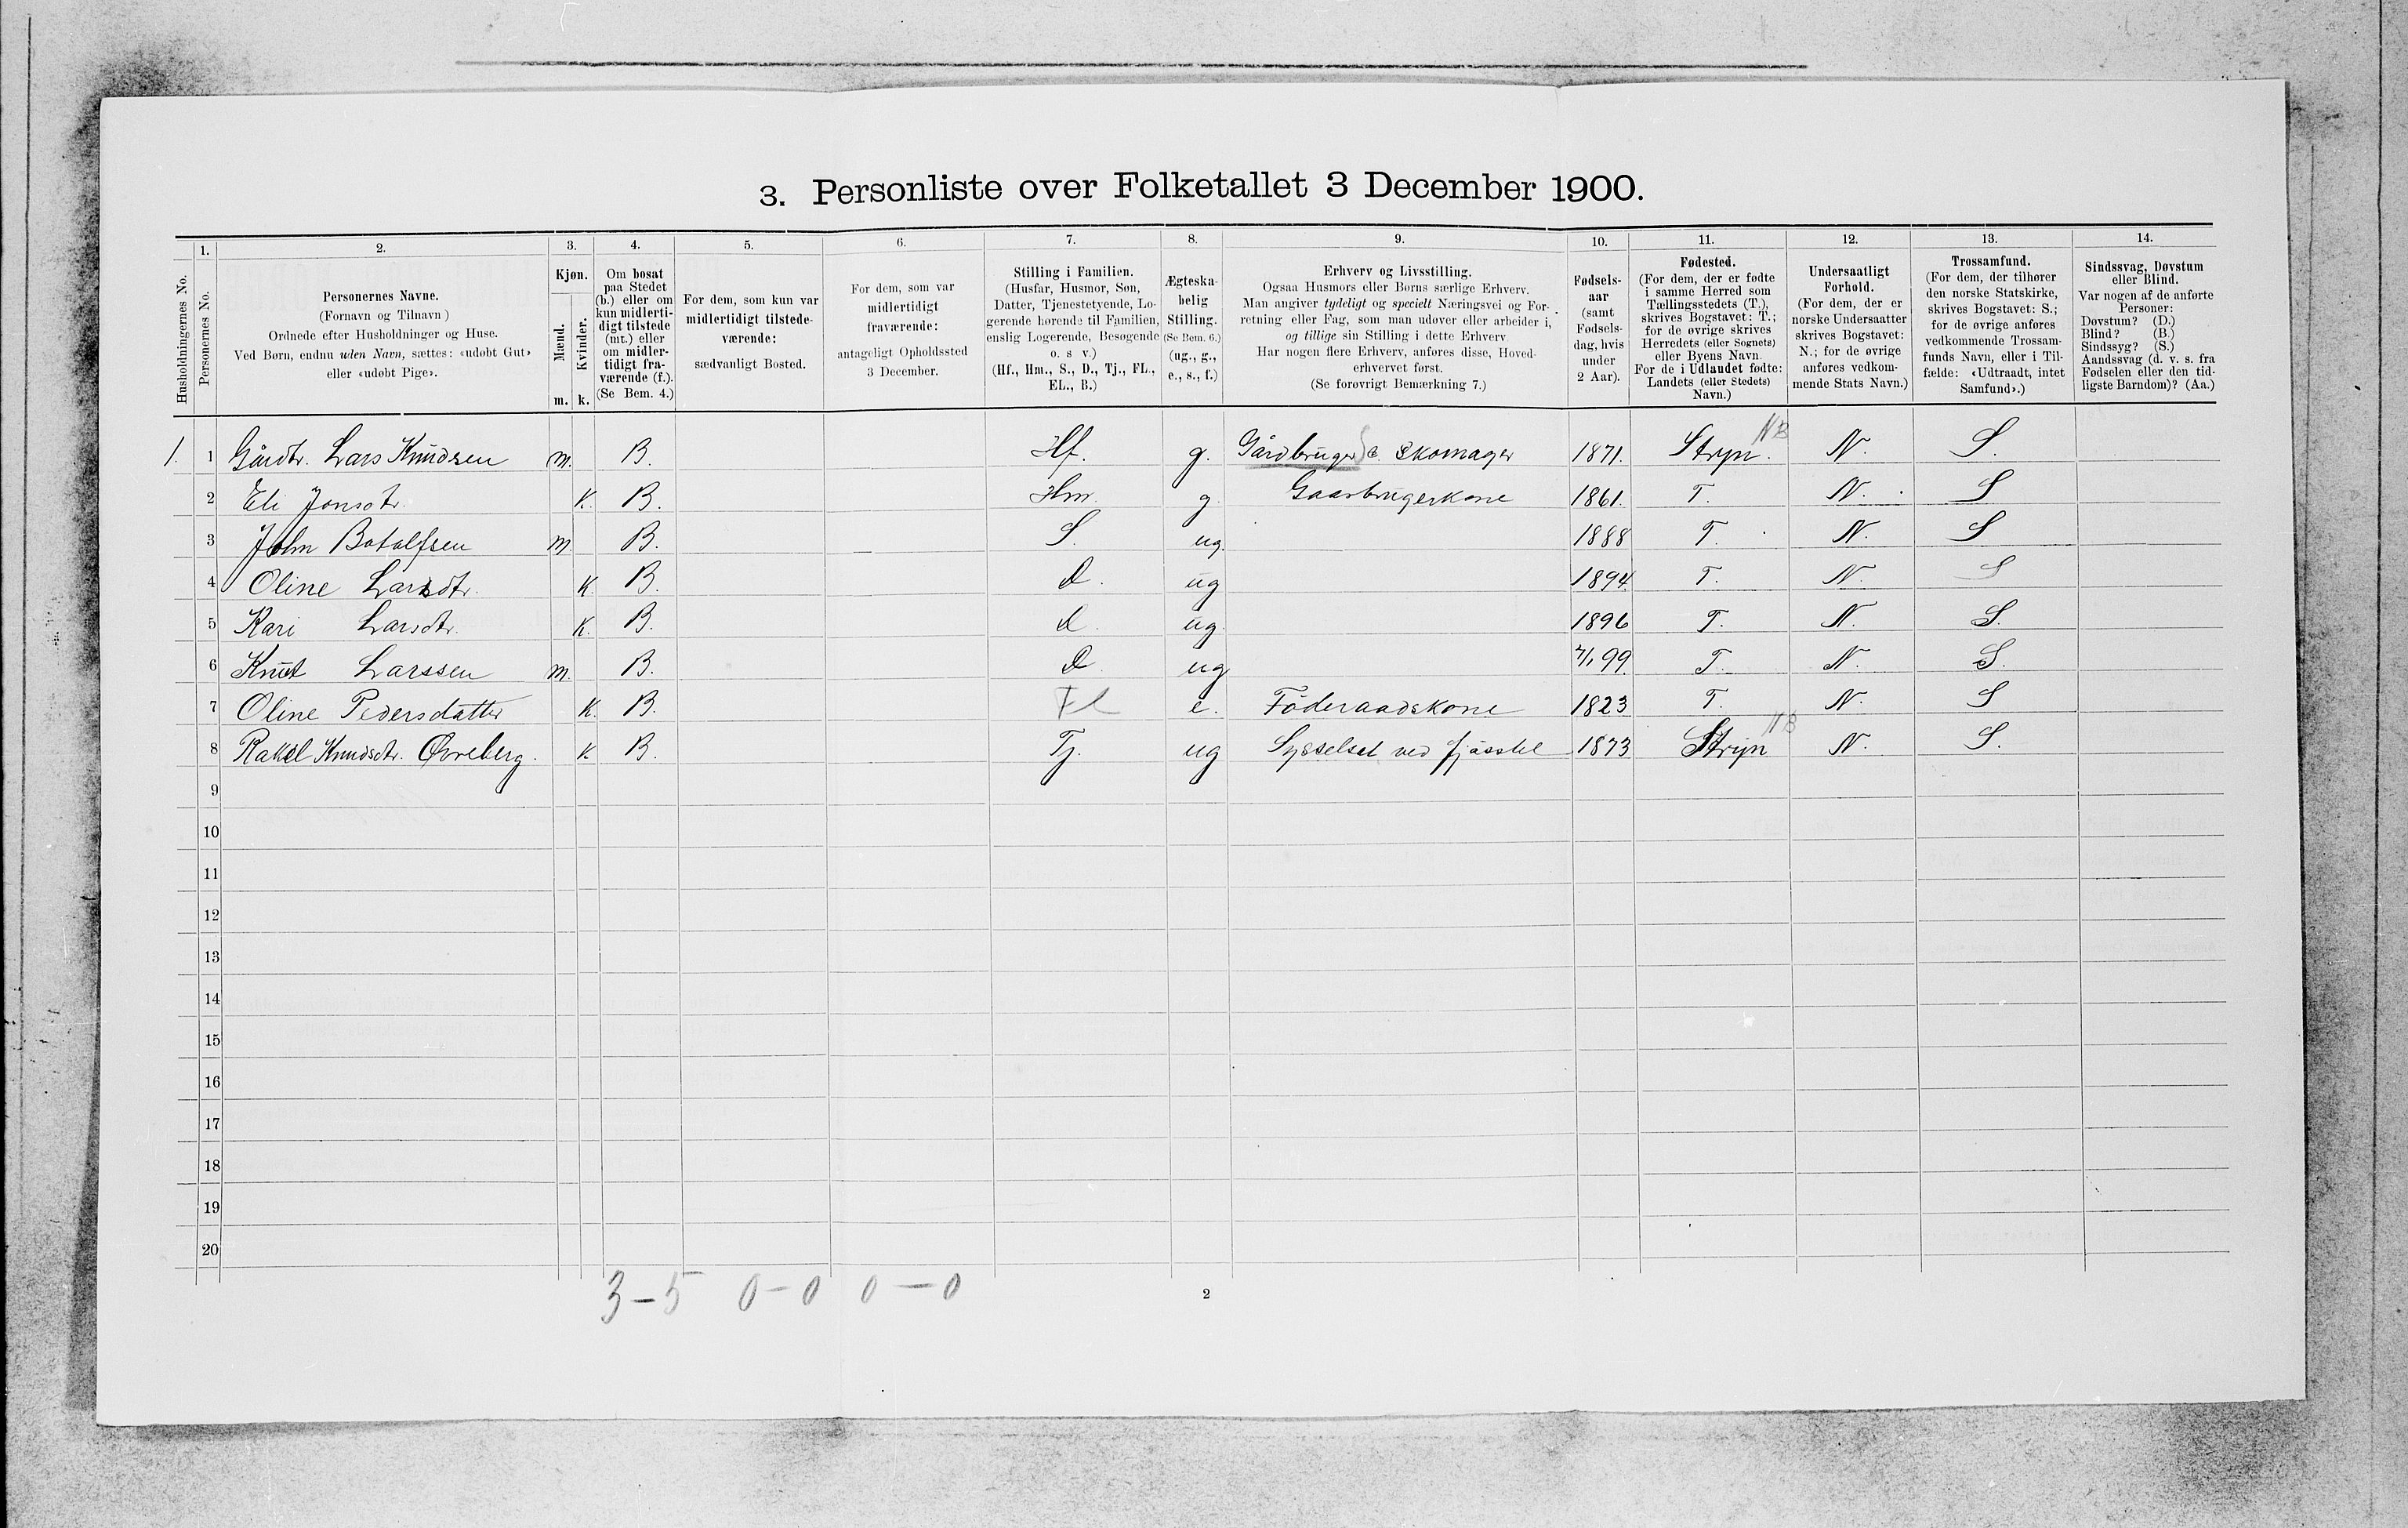 3. Personliste over Folketallet 3 December 1900.
1. 2. 3. 4. 5. 6. 7. 8. 9. 10. 11. 12. 13. 14.
Husholdningernes No.
Personernes No.
Personernes Navne.
(Fornavn og Tilnavn)
Ordnede efter Husholdninger og Huse.
Ved Børn, endnu uden Navn, sættes: «udøbt Gut»
eller «udøbt Pige».
Kjøn.
Mænd.
Kvinder.
m. k.
Om bosat
paa Stedet
(b.) eller om
kun midlerti-
digt tilstede
(mt.) eller
om midler-
tidigt fra-
værende (f.).
(Se Bem. 4.)
For dem, som kun var
midlertidigt tilstede-
værende:
sædvanligt Bosted.
For dem, som var
midlertidigt
fraværende:
antageligt Opholdssted
3 December.
Stilling i Familien.
(Husfar, Husmor, Søn,
Datter, Tjenestetyende, Lo-
gerende hørende til Familien,
enslig Logerende, Besøgende
o. s v.)
(Hf., Hm., S., D., Tj., FL.,
EL., B.)
Ægteska-
belig
Stilling.
(Se Bem. 6.)
(ug., g.,
e., s., f.)
Erhverv og Livsstilling.
Ogsaa Husmors eller Børns særlige Erhverv.
Man angiver tydeligt og specielt Næringsvei og For-
retning eller Fag, som man udøver eller arbeider i,
og tillige sin Stilling i dette Erhverv
Har nogen flere Erhverv, anføres disse, Hoved-
erhvervet først.
(Se forøvrigt Bemærkning 7.)
Fødsels-
aar
(samt
Fødsels-
dag, hvis
under
2 Aar).
Fødested.
(For dem, der er fødte
i samme Herred som
Tællingsstedets (T.),
skrives Bogstavet: T.;
for de øvrige skrives
Herredets (eller Sognets)
eller Byens Navn.
For de i Udlandet fødte:
Landets (eller Stedets)
Navn.)
Undersaatligt
Forhold.
(For dem, der er
norske Undersaatter
skrives Bogstavet:
N.; for de øvrige
anføres vedkom-
mende Stats Navn.)
Trossamfund.
(For dem, der tilhører
den norske Statskirke,
skrives Bogstavet: S.;
for de øvrige anføres
vedkommende Trossam-
funds Navn, eller i Til-
fælde: «Udtraadt, intet
Samfund».)
Sindssvag, Døvstum
eller Blind.
Var nogen af de anførte
Personer:
Døvstum? (D.)
Blind? (B.)
Sindssyg? (S.)
Aandssvag (d. v. s. fra
Fødselen eller den tid-
ligste Barndom)? (Aa.)
1. 1 Gårdbr. Lars Knudsen m. B. Hf. g. Gårdbruger & Skomager 1871. Stryn. NB N. S.
2 Eli Jonsdtr. K. B. Hm. g. Gaarbrugerkone 1861. T. N. S
3 John Botolfsen m B. S. ug. 1888 T. N. S
4 Oline Larsdtr. K. B. D. ug 1894. T. N. S
5 Kari Larsdtr. K. B. D. ug. 1896 T. N. S.
6 Knut Larssen m. B. D. ug 7/1 99. T. N. S.
7 Oline Pedersdatter K. B. Fl e. Föderaadskone 1823 T. N. S
8 Rakel Knudsdtr. Øvreberg. K B. Tj. ug Sysselsat ved fjösstel 1873 Stryn NB N. S.
9
10
11
12
13
14
15
16
17
18
19
20
3-5 0-0 0-0
2